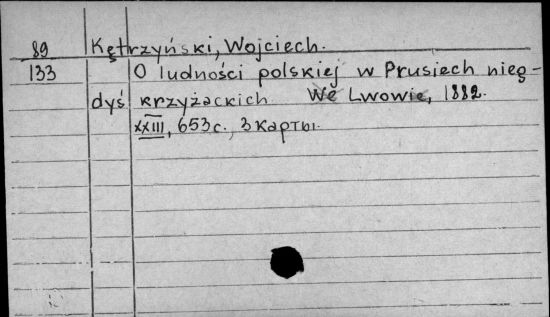 89 Kętrzyński, Wojciech.
133 O ludności polskiej w Prusiech nieg-
dyś krzyżackich. We Lwowie, 1882.
XXIII, 653 с., 3 карты.